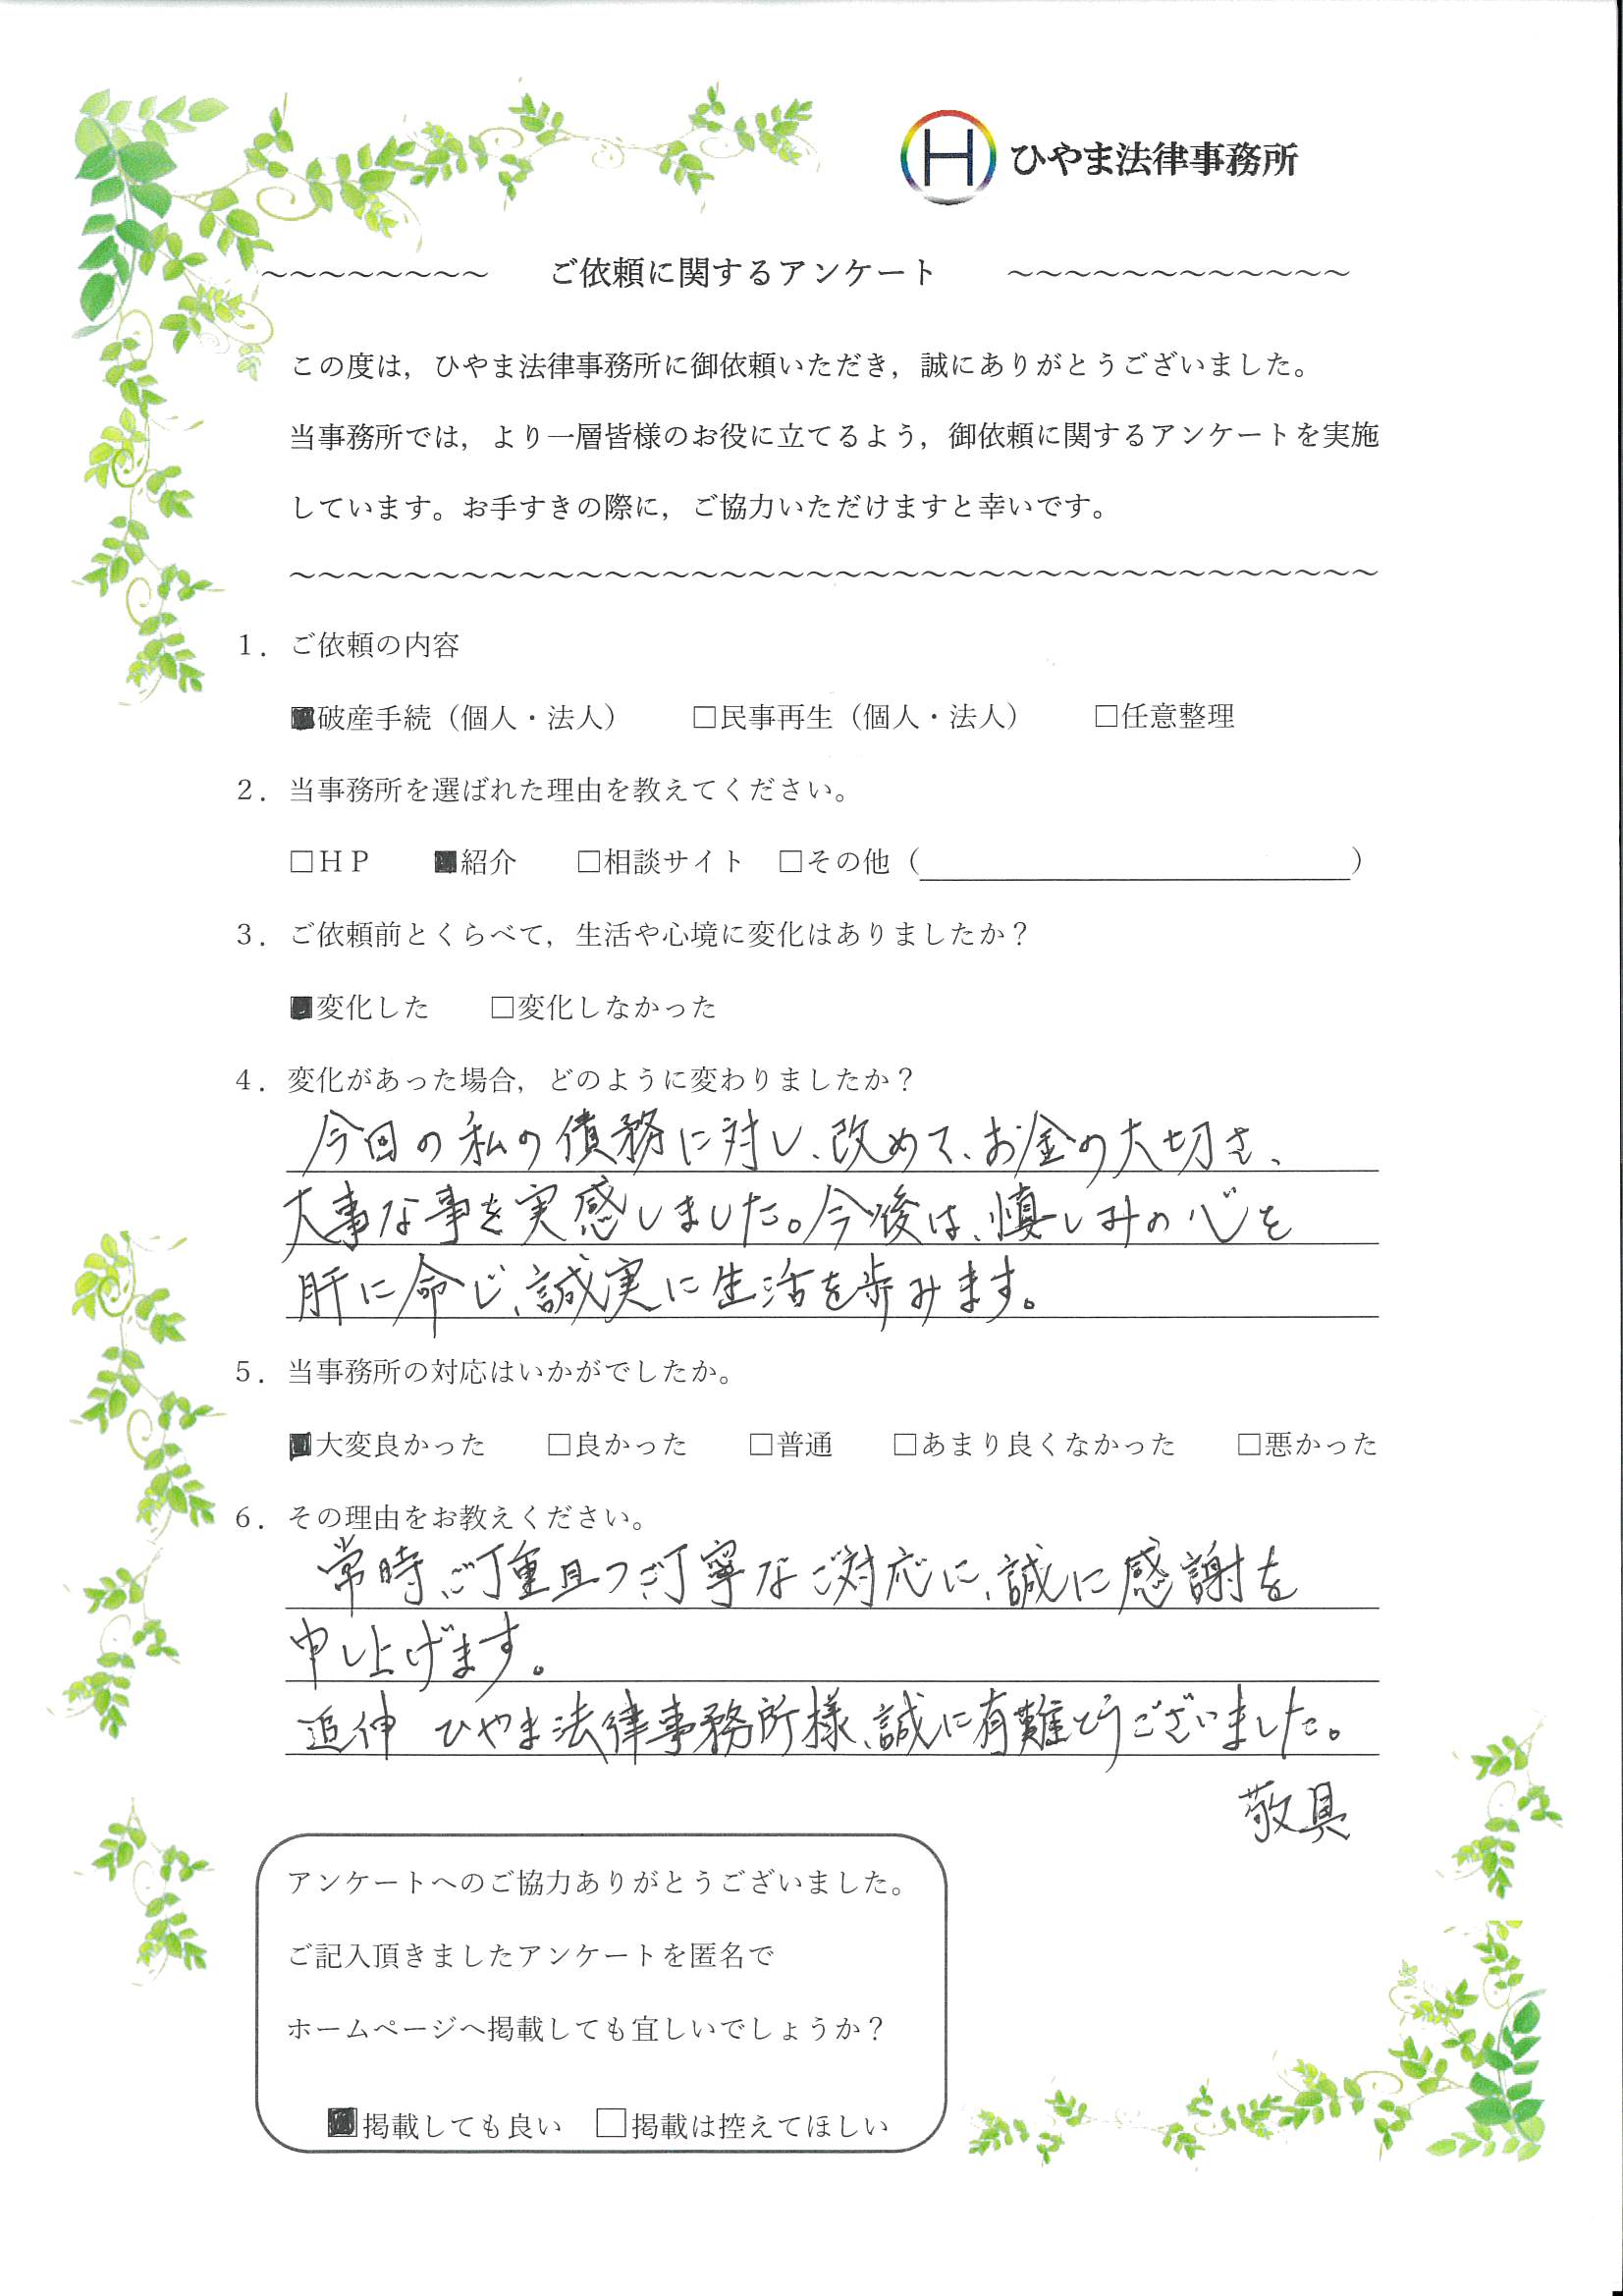 H ひやま法律事務所
～～～～～～～～ ご依頼に関するアンケート ～～～～～～～～～～～～
この度は，ひやま法律事務所に御依頼いただき，誠にありがとうございました。
当事務所では，より一層皆様のお役に立てるよう，御依頼に関するアンケートを実施
しています。お手すきの際に，ご協力いただけますと幸いです。
～～～～～～～～～～～～～～～～～～～～～～～～～～～～～～～～～～～～～～
１．ご依頼の内容
■破産手続（個人・法人） □民事再生（個人・法人） □任意整理
２．当事務所を選ばれた理由を教えてください。
□ＨＰ ■紹介 □相談サイト □その他（ ）
３．ご依頼前とくらべて，生活や心境に変化はありましたか？
■変化した □変化しなかった
４．変化があった場合，どのように変わりましたか？
今回の私の債務に対し、改めて、お金の大切さ、
大事な事を実感しました。今後は、慎しみの心を
肝に命じ、誠実に生活を歩みます。
５．当事務所の対応はいかがでしたか。
■大変良かった □良かった □普通 □あまり良くなかった □悪かった
６．その理由をお教えください。
常時、ご丁重且つご丁寧なご対応に、誠に感謝を
申し上げます。
追伸 ひやま法律事務所様、誠に有難とうございました。
敬具
アンケートへのご協力ありがとうございました。
ご記入頂きましたアンケートを匿名で
ホームページへ掲載しても宜しいでしょうか？
■掲載しても良い □掲載は控えてほしい